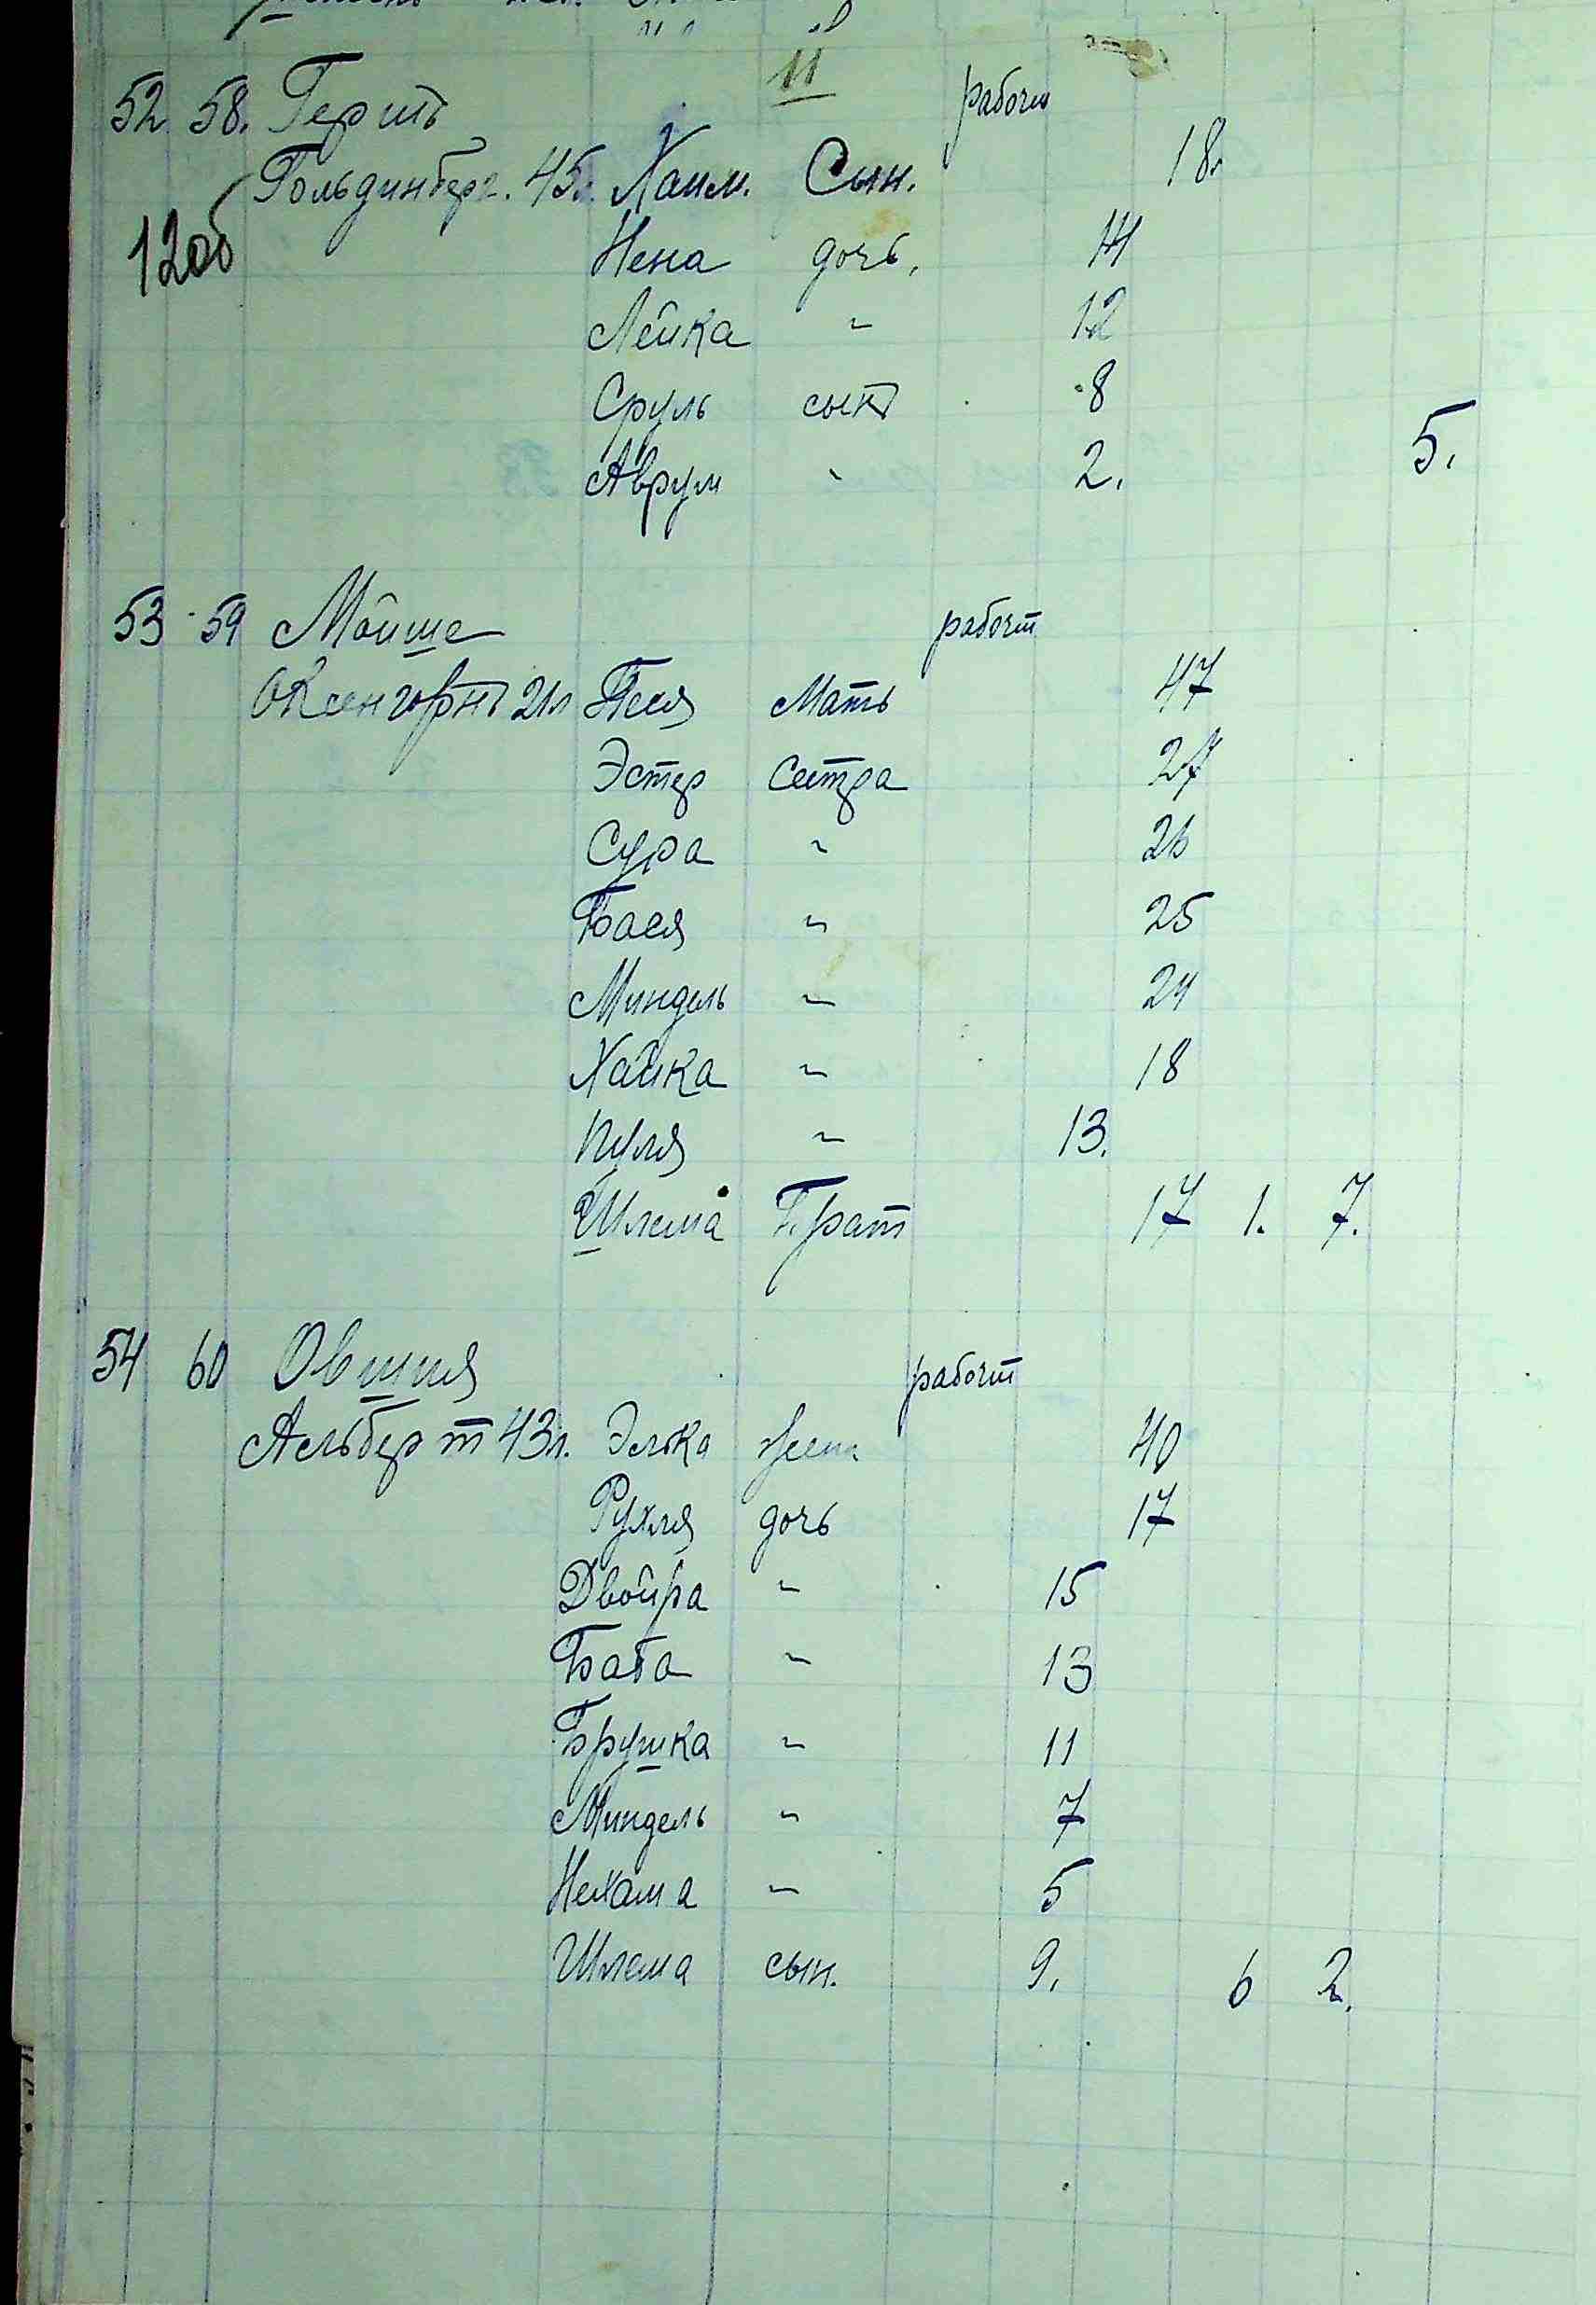 11
52 58. Герш рабочи
Гольдинберг. 45л. Хаим. Сын. 18.
12об
Нена дочь. 14
Лейка " 12
Сруль сын 8
Аврум " 2. 5.
53 59 Мойше рабочт
Оксенгорнъ 21л Песя Мать 47
Эстер Сестра 27
Сура " 26
Бася " 25
Миндель " 24
Хайка " 18
Пуля " 13.
Шлема Брат 17 1. 7.
54 60 Овшия рабочт
Альберт 43л. Элька жена 40
Рухля дочь 17
Двойра " 15
Баба " 13
Брушка " 11
Миндель " 7
Нехама " 5
Шлема сын. 9. 6 2.